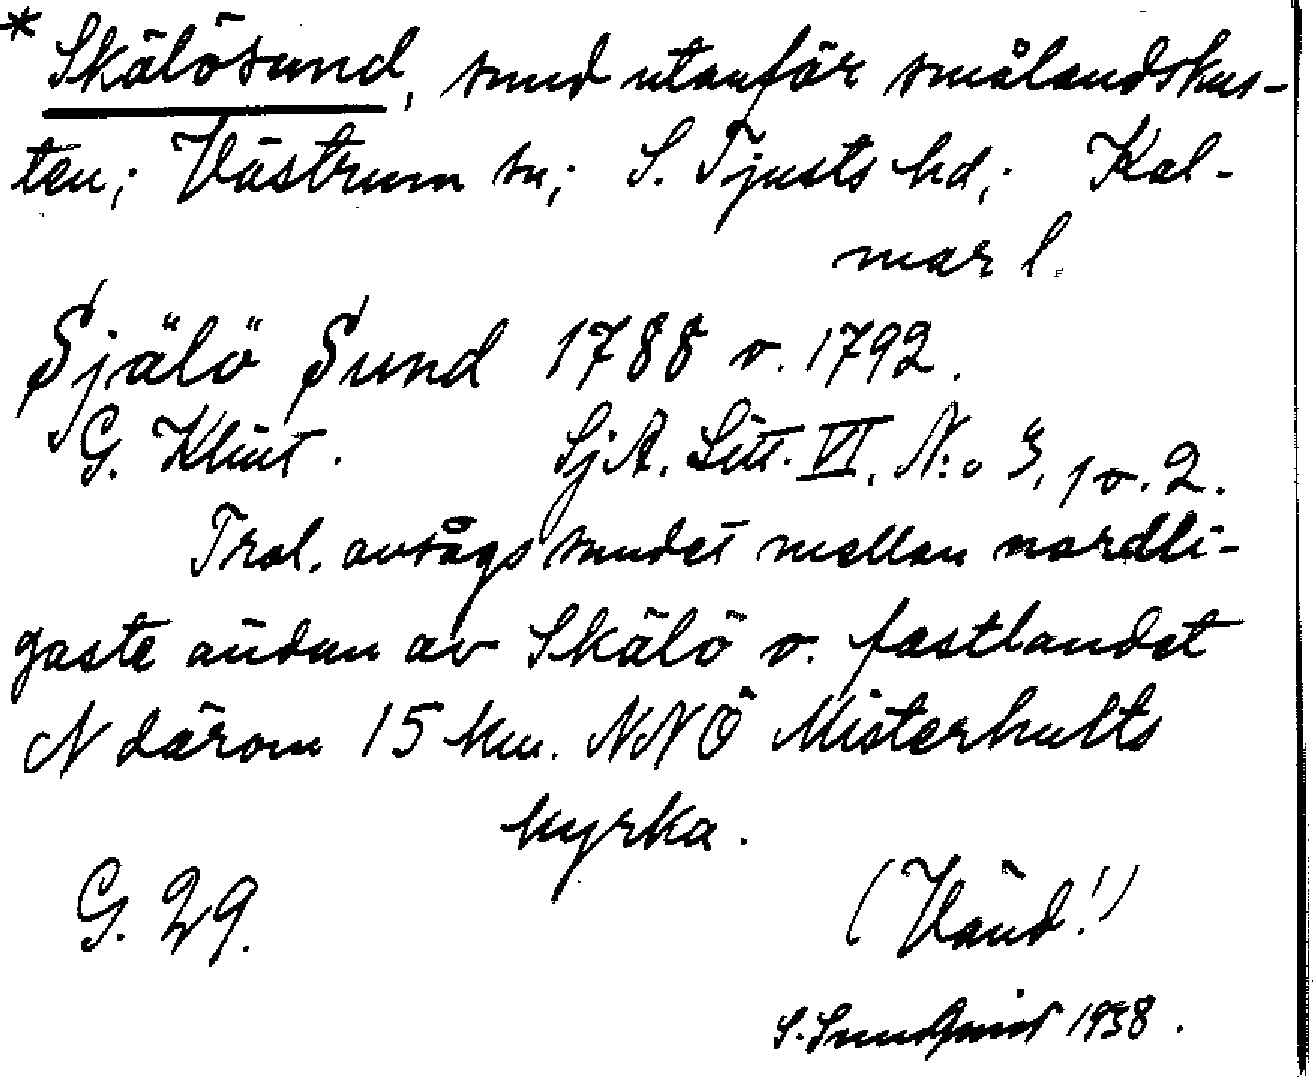 * Skälösund, sund utanför smålandskus-
ten; Västrum sn; S. Tjusts hd; Kal-
mar l.
Själö Sund 1788 o. 1792.
G. Klint. SjA. Litt. VI. N:o 3, 1 o. 2.
Trol. avsågs sundet mellan nordli-
gaste ändan av Skälö o. fastlandet
N därom 15 km. NNÖ Misterhults
kyrka.
G. 29. (Vänd!)
S. Sundqvist 1938.